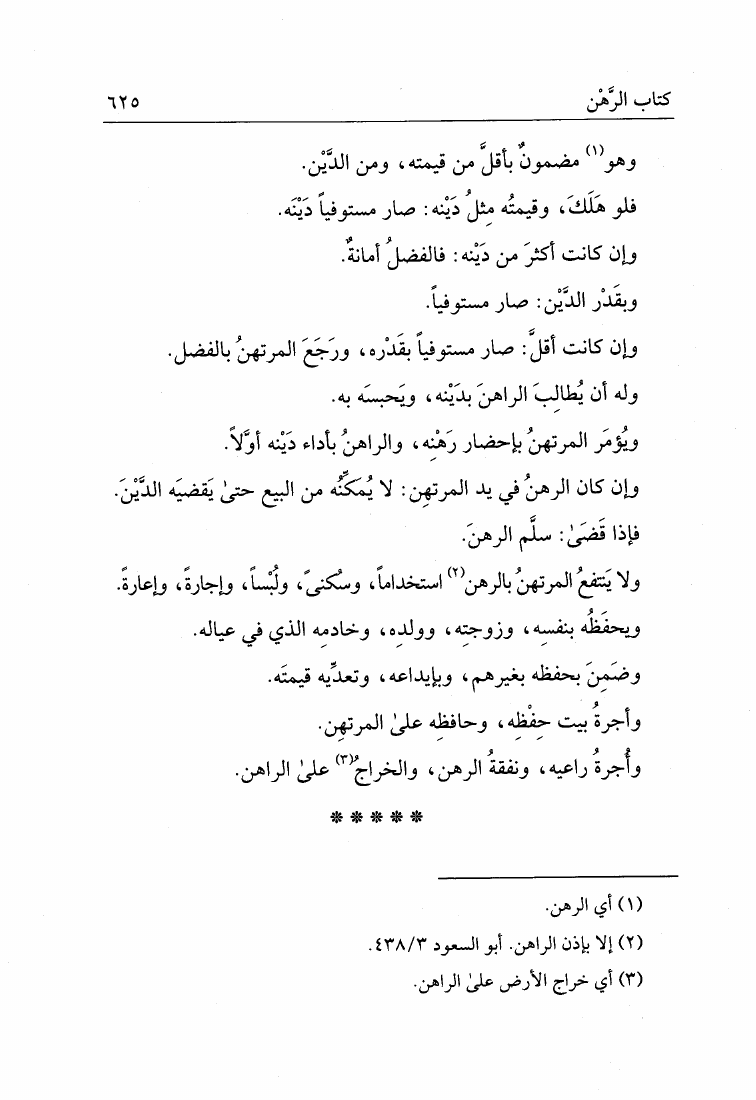 كتاب الرَّهْن ٦٢٥
وهو(١) مضمونٌ بأقلَّ من قيمته، ومن الدَّيْن.
فلو هَلَكَ، وقيمتُه مِثلُ دَيْنه: صار مستوفياً دَيْنَه.
وإن كانت أكثرَ من دَيْنه: فالفضلُ أمانةٌ.
وبقَدْر الدَّيْن: صار مستوفياً.
وإن كانت أقلَّ: صار مستوفياً بقَدْره، ورَجَعَ المرتهنُ بالفضل.
وله أن يُطالِبَ الراهنَ بدَيْنه، ويَحبسَه به.
ويُؤمَر المرتهنُ بإحضار رَهْنِه، والراهنُ بأداء دَيْنه أوَّلاً.
وإن كان الرهنُ في يد المرتهِن: لا يُمَكِّنُه من البيع حتىٰ يَقضيَه الدَّيْنَ.
فإذا قَضَىٰ: سلَّم الرهنَ.
ولا يَنتفعُ المرتهنُ بالرهن(٢) استخداماً، وسُكنىً، ولُبْساً، وإجارةً، وإعارةً.
ويحفَظُه بنفسِه، وزوجتِه، وولدِه، وخادمِه الذي في عياله.
وضَمِنَ بحفظه بغيرهم، وبإيداعه، وتعدِّيه قيمتَه.
وأجرةُ بيت حِفْظِه، وحافظِه علىٰ المرتهِن.
وأُجرةُ راعيه، ونفقةُ الرهن، والخراجُ(٣) علىٰ الراهن.
*****
(١) أي الرهن.
(٢) إلا بإذن الراهن. أبو السعود ٤٣٨/٣.
(٣) أي خراج الأرض علىٰ الراهن.